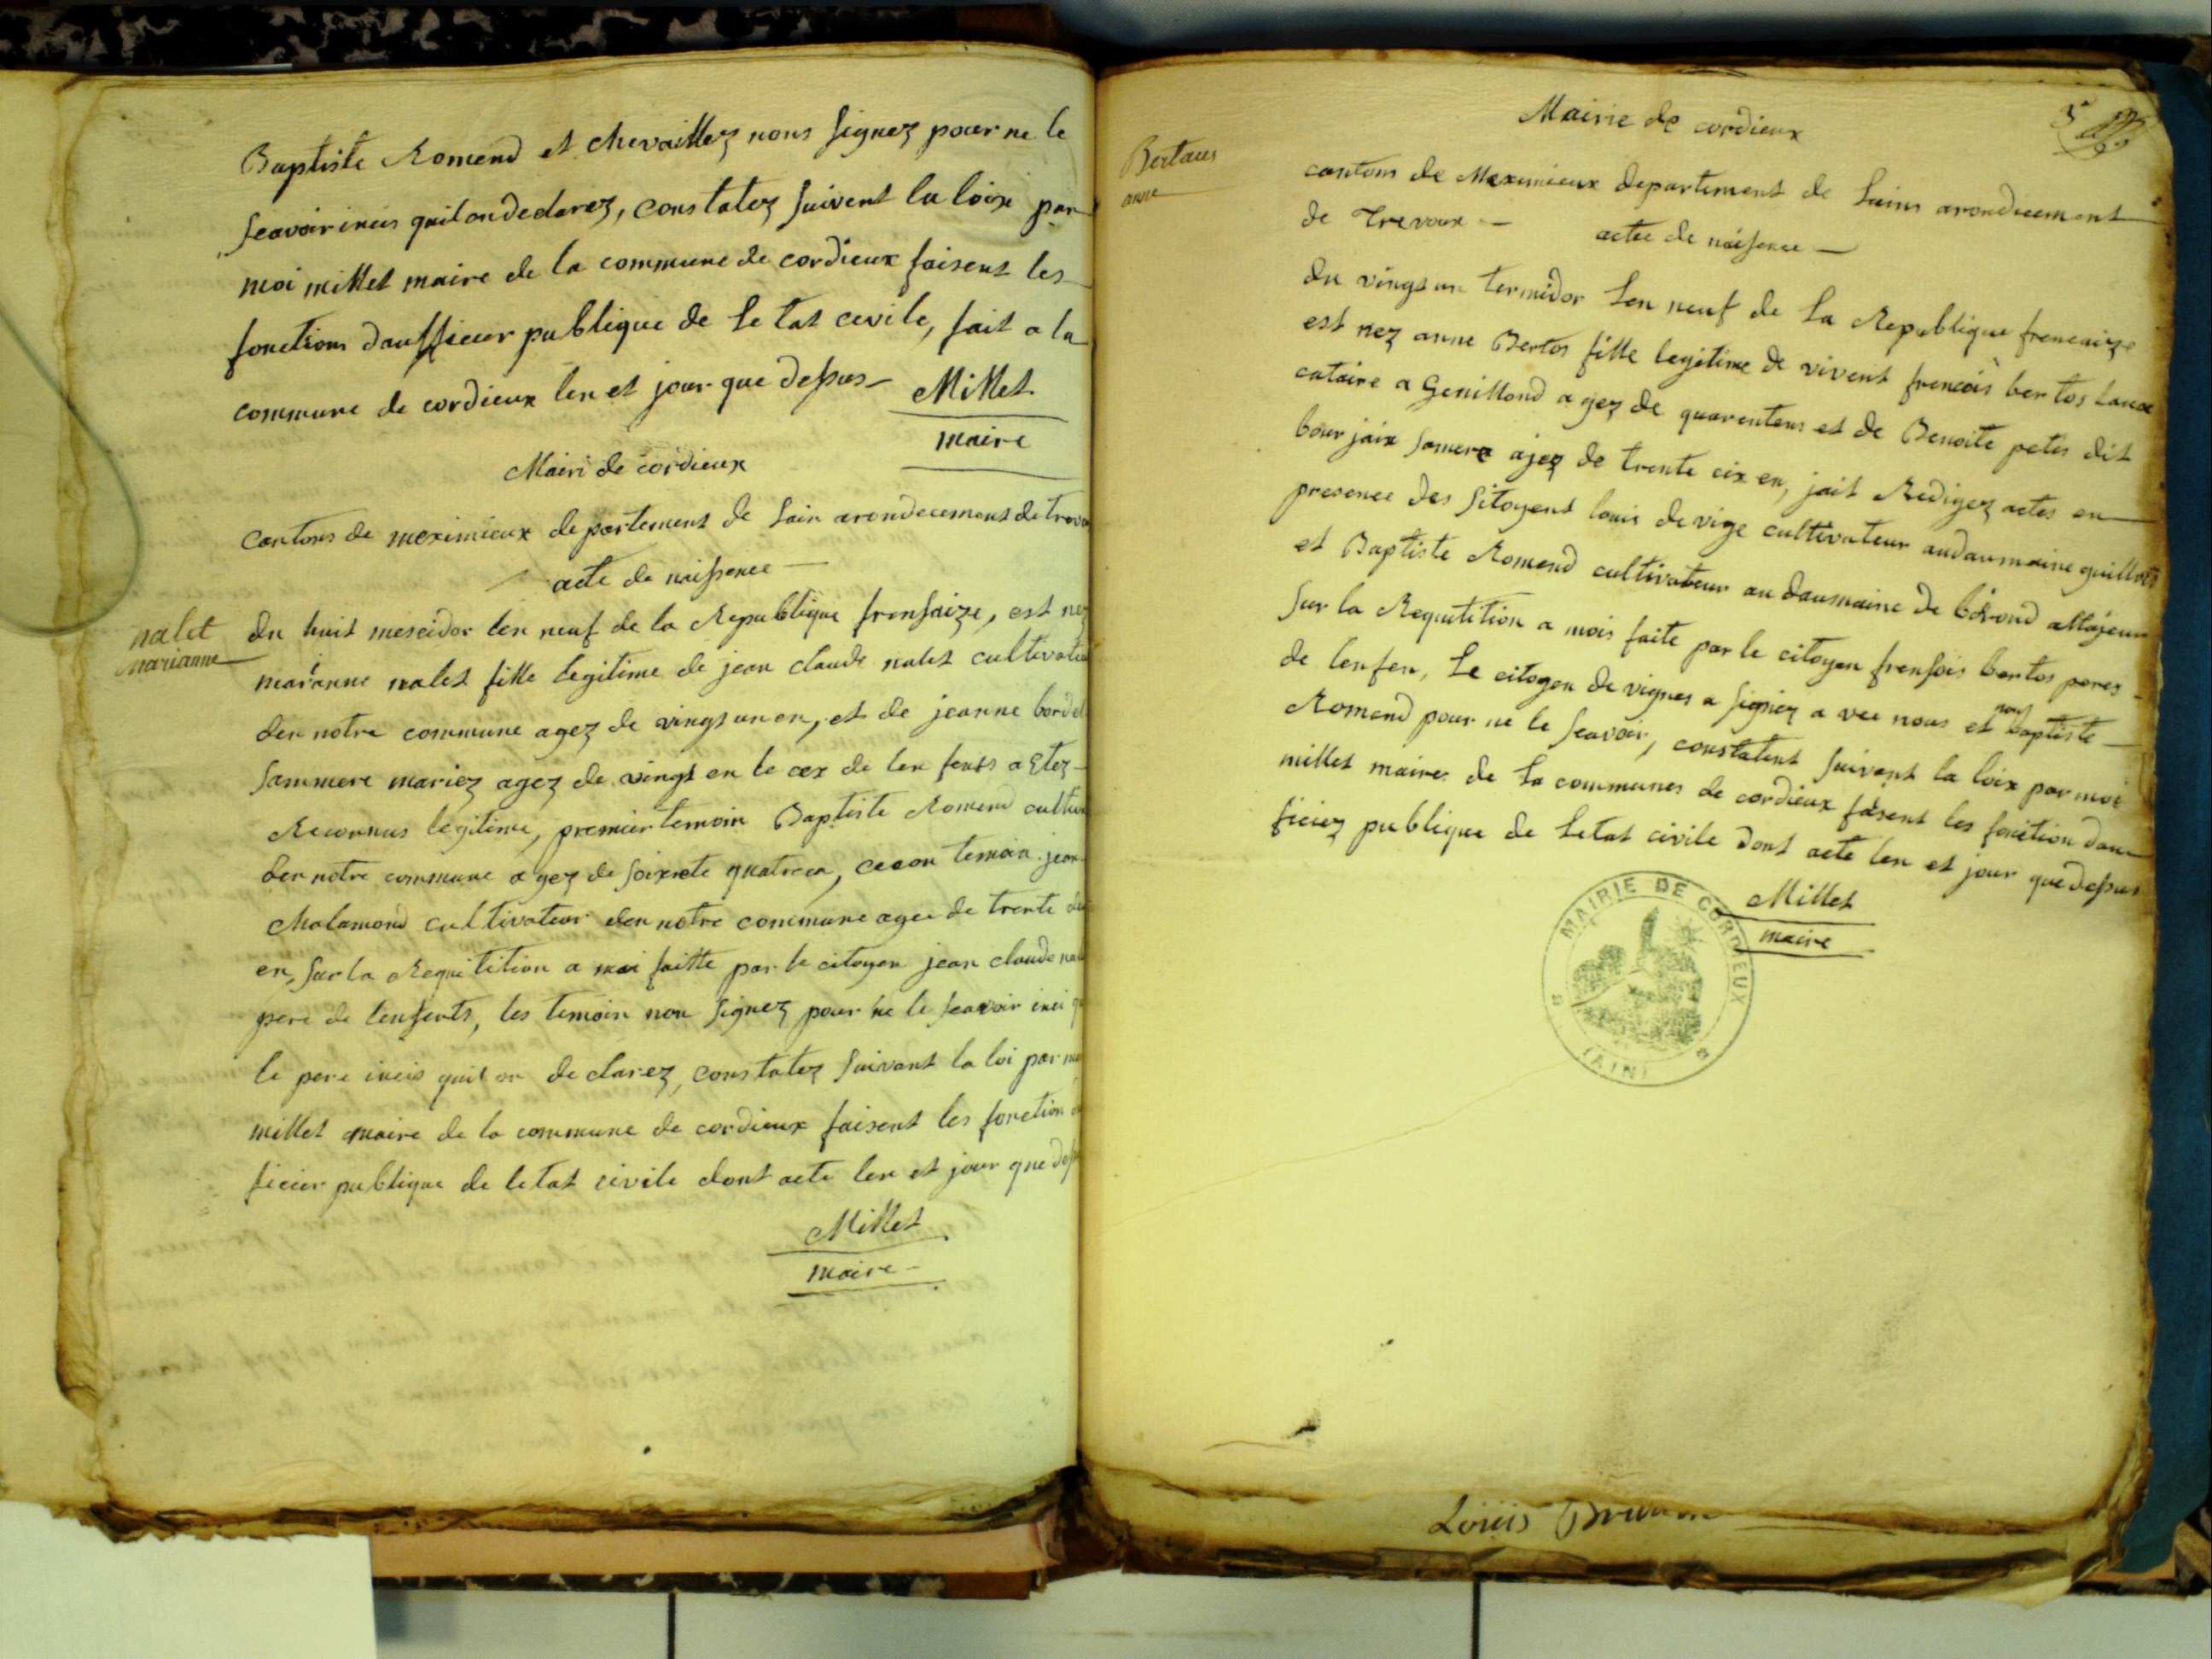 Baptiste Romend et chevaillez nous signez pour ne le
scavoir incis quil on declarez, constatez suivent la loix par
moi millet maire de la commune de cordieux faisent les
fonctions daufficier publique de letat cevile, fait a la
commune de cordieux len et jour que dessus
Millet
maire
Mairi de cordieux
cantons de meximieux departement de lain arondecement de trevo
acte de naissence
nalet
marianne
du huit mescidor len neuf de la Republique frensaize, est nez
marianne nalet fille legitime de jean claude nalet cultivateu
den notre commune agez de vingt un en, et de jeanne bordel
sammere mariez agez de vingt en le cex de len fents a Etez
Reconnus legitime, premier temoin Baptiste Romend cultiv
den notre commune agez de soixete quatre en, cecon temoin jean
Malamond cultivateur den notre commune agee de trente de
en, sur la Requitition a moi faitte par le citoyen jean claude nal
pere de lenfents, les temoin non signez pour ne le scavoir inci q
le pere incis quil on declarez, constatez suivant la loi par m
millet maire de la commune de cordieux faisent les fonction d
ficier publique de letat civile dont acte len et jour que des
Millet
maire
5
Mairie de cordieux
Bertaus
anne
cantons de Meximieux departement de Lains arondicement
de Trevoux acte de naissence
du vingt un termidor Len neuf de La Republique frencaize
est nez anne Bertos fille legitime de vivent francois bertos Laux
cataire a Genillond agez de quarentens et de Benoite petes dit
bourjaix samere ajez de trente cix en, fait Redigez actes en
presence des sitoyent louis devige cultivateur audaumaine quillots
et Baptiste Romend cultivateur au daumaine de bérond attajeur
sur la Requitition a mois faite par le citoyen frensois bertos peres
de lenfen, Le citoyen de vignes a signiez a vec nous et non baptiste
Romend pour ne le scavoir, constatent suivent la loix par moi
millet maires de La communes de cordieux faisent les fonction dau
ficiez publique de Letat civile dont acte len et jour que dessus
Millet
maire
MAIRIE DE CORDIEUX
(AIN)
Louis